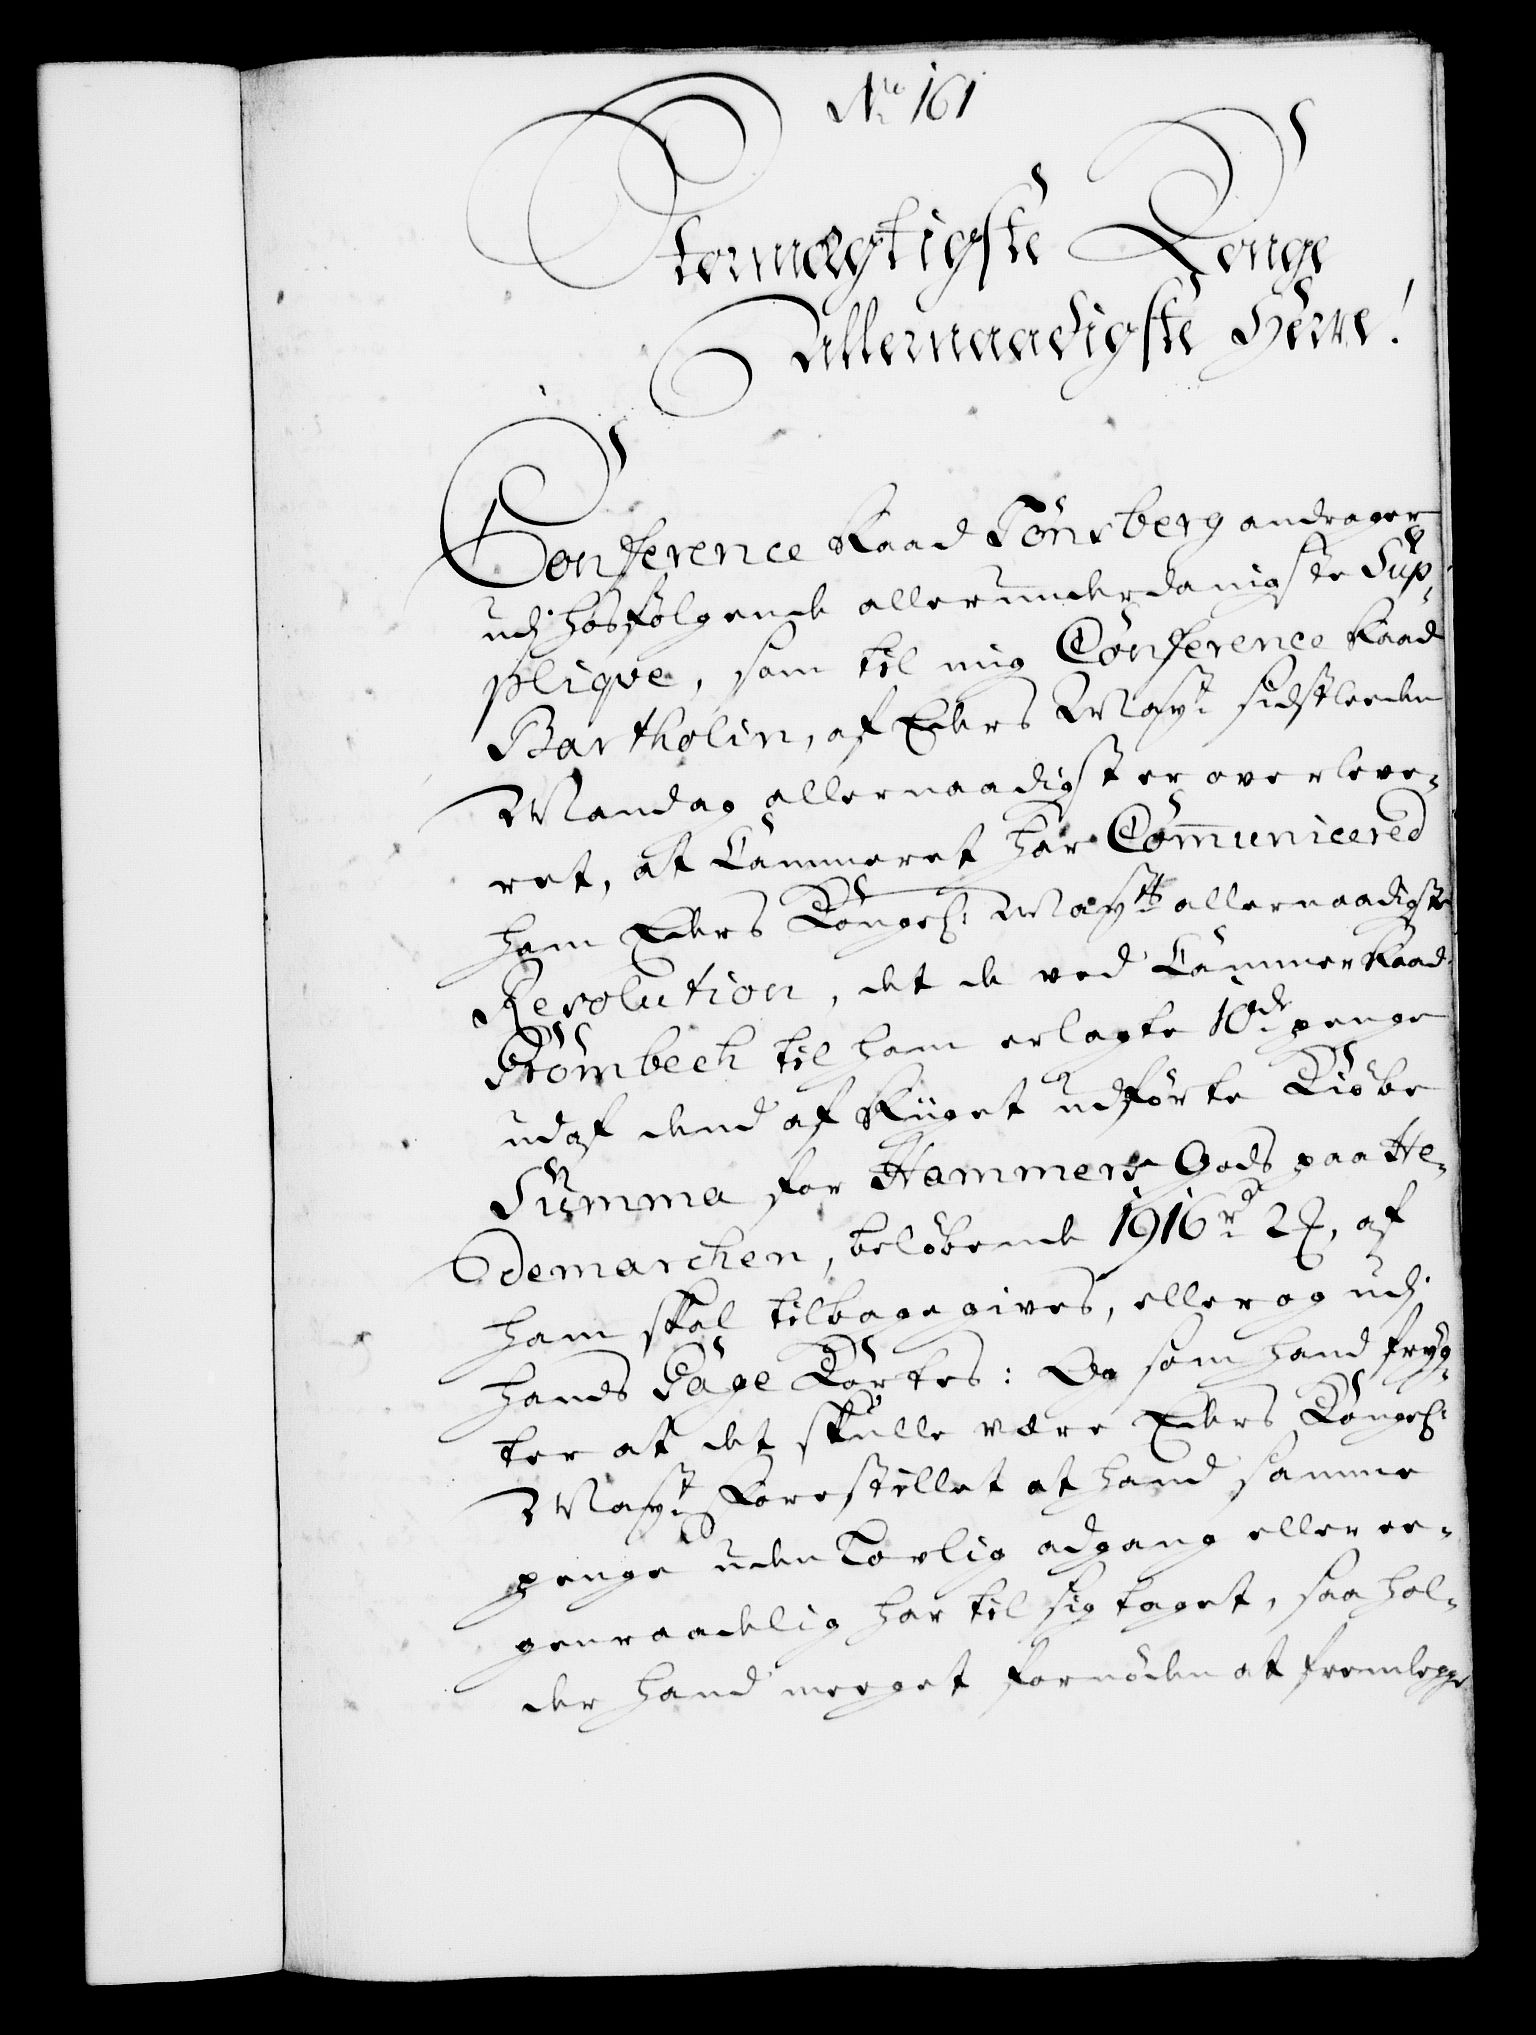 No 161
Stormægtigste Konge
Allernaadigste Herre!
Conference Raad Tönsberg andrager
udj hosfølgende allerunderdanigste Sup-
pliqve, som til mig Conference Raad
Bartholin, af Eders Mayt sidstleeden
Mandag allernaadigst er overleve-
ret, at Cammeret har Communicered
ham Eders Kongel: Maytts allernaadigste
Resolution, det de ved Cammer Raad
Römbech til ham erlagte 10de penge
udaf dend af Riiget udførte Kiøbe
Summa for Hammers Gods paa He-
demarchen, beløbende 1916 rd 2 , af
ham skal tilbagegives, eller og udj
hands Gage Kortes: Og som hand fryg-
ter at det skulle være Eders Kongel:
Mayt Forestillet at hand samme
penge uden Lovlig adgang eller ee-
genraadelig har til sig taget, saa hol-
der hand meeget fornøden at fremlegge